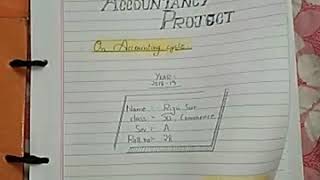 ACCOUNTANCY
PROJECT
On Accounting cycle
YEAR:
2018-19
Name:- Riju Sur
class:- XI, Commerce
Sec:- A
Roll no:- 28